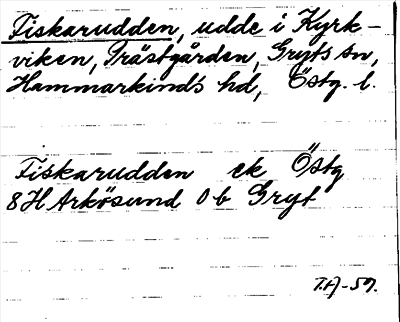 Fiskarudden, udde i Kyrk-
viken, Prästgården, Gryts sn,
Hammarkinds hd, Östg. l.
Fiskarudden ek Östg
8H Arkösund 0b Gryt
T.A-59.